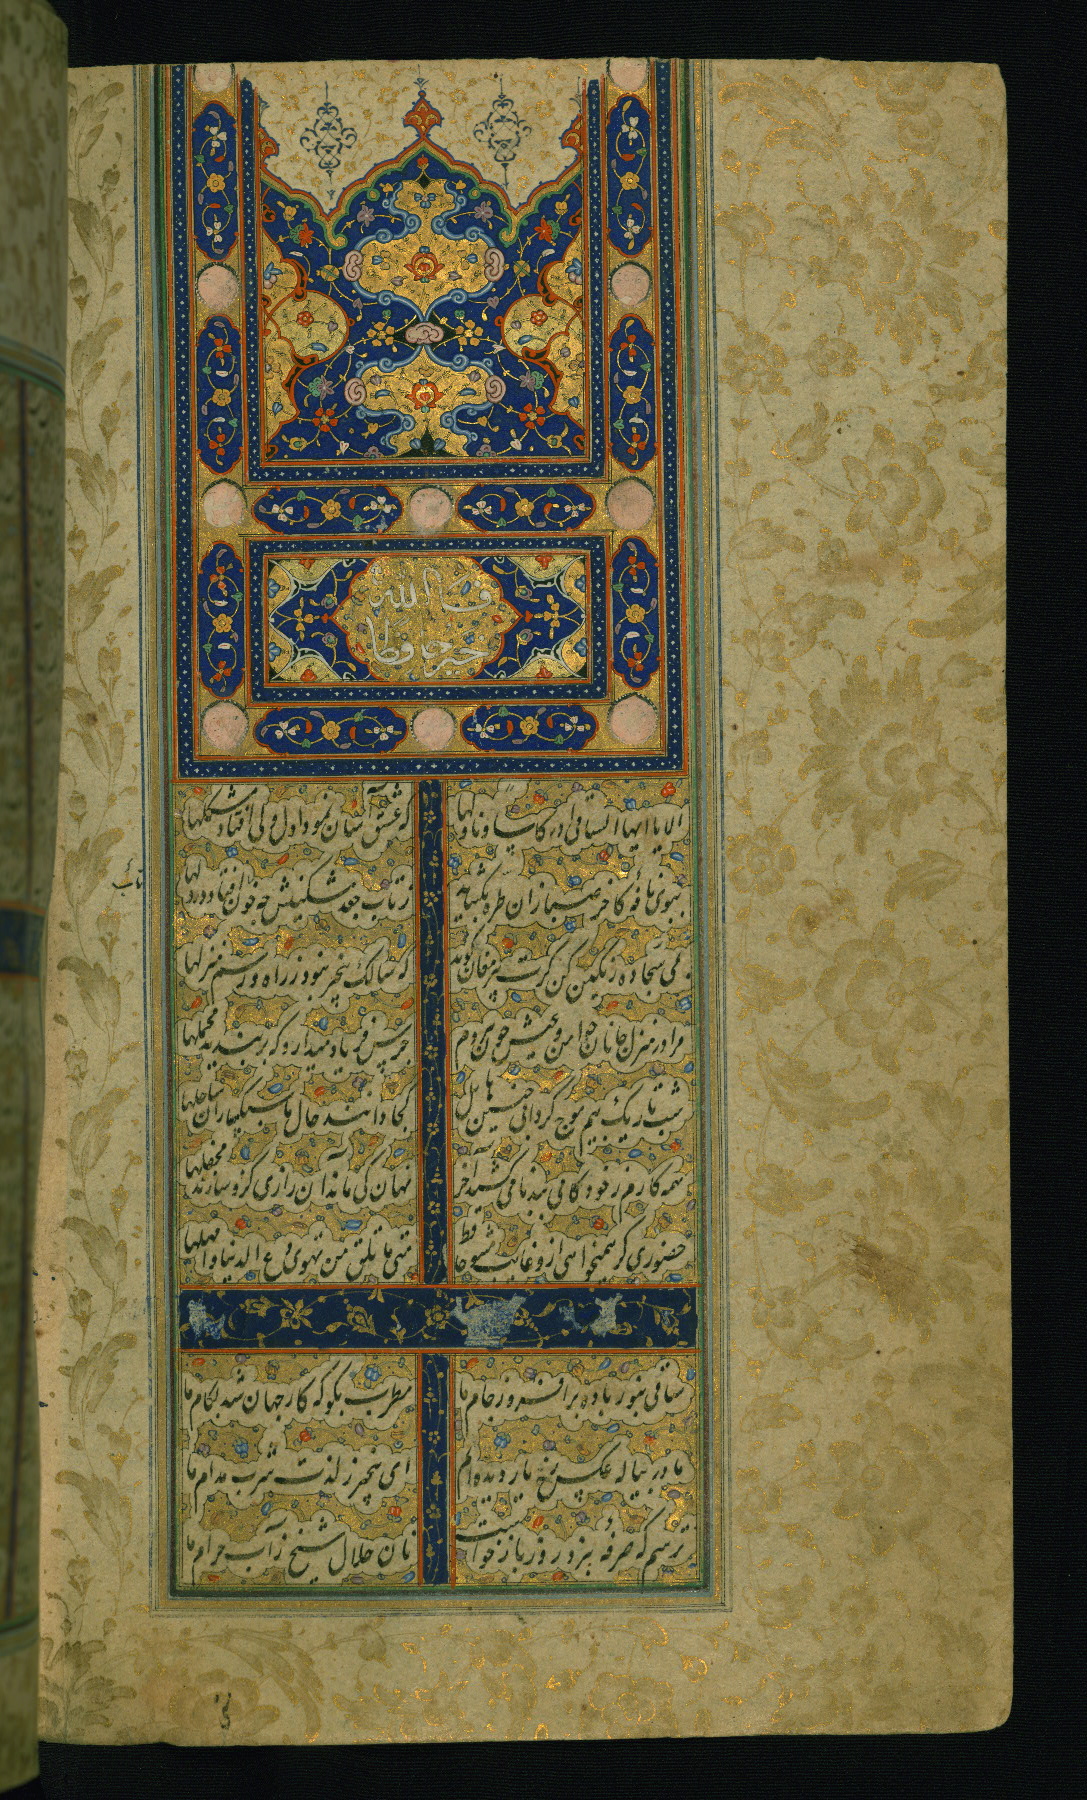 فالله
خیر حافظا
الا یا ایها الساقی ادر کاسا و ناولها که عشق آسان نمود اول ولی افتاد مشکلها
ببوی نافه کاخر صبا زان طره بگشاید ز تاب جعد مشکینش چه خون افتاد در دلها
بمی سجاده رنگین کن گرت پیر مغان گوید که سالک بیخبر نبود ز راه و رسم منزلها
مرا در منزل جانان چه امن و عیش چون هر دم جرس فریاد میدارد که بربندید محملها
شب تاریک و بیم موج و گردابی چنین هایل کجا دانند حال ما سبکباران ساحلها
همه کارم ز خود کامی ببدنامی کشید آخر نهان کی ماند آن رازی کزو سازند محفلها
حضوری گر همیخواهی ازو غایب مشو حافظ متی ما تلق من تهوی دع الدنیا و اهملها
ساقی بنور باده برافروز جام ما مطرب بگو که کار جهان شد بکام ما
ما در پیاله عکس رخ یار دیده ایم ای بیخبر ز لذت شرب مدام ما
ترسم که صرفه نبرد روز بازخواست نان حلال شیخ ز آب حرام ما